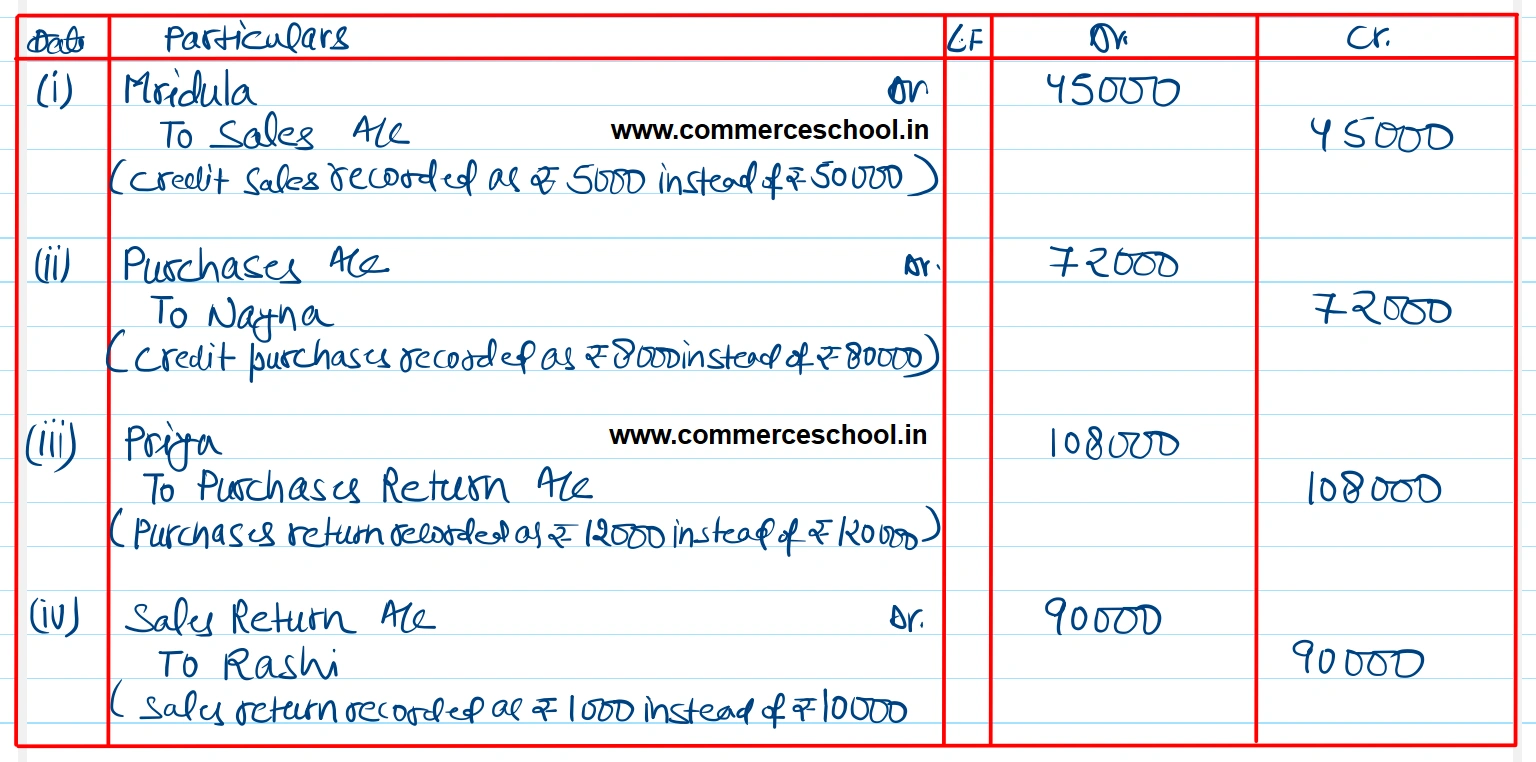 Date Particulars L.F Dr. Cr.
(i) Mridula Dr 45000
To Sales A/c www.commerceschool.in 45000
(Credit sales recorded as ₹ 5000 instead of ₹ 50000)
(ii) Purchases A/c Dr. 72000
To Nayna 72000
(Credit purchases recorded as ₹ 8000 instead of ₹ 80000)
(iii) Priya www.commerceschool.in 108000
To Purchases Return A/c 108000
(Purchases return recorded as ₹ 12000 instead of ₹ 120000)
(iv) Sales Return A/c Dr. 90000
To Rashi 90000
(Sales return recorded as ₹ 1000 instead of ₹ 10000